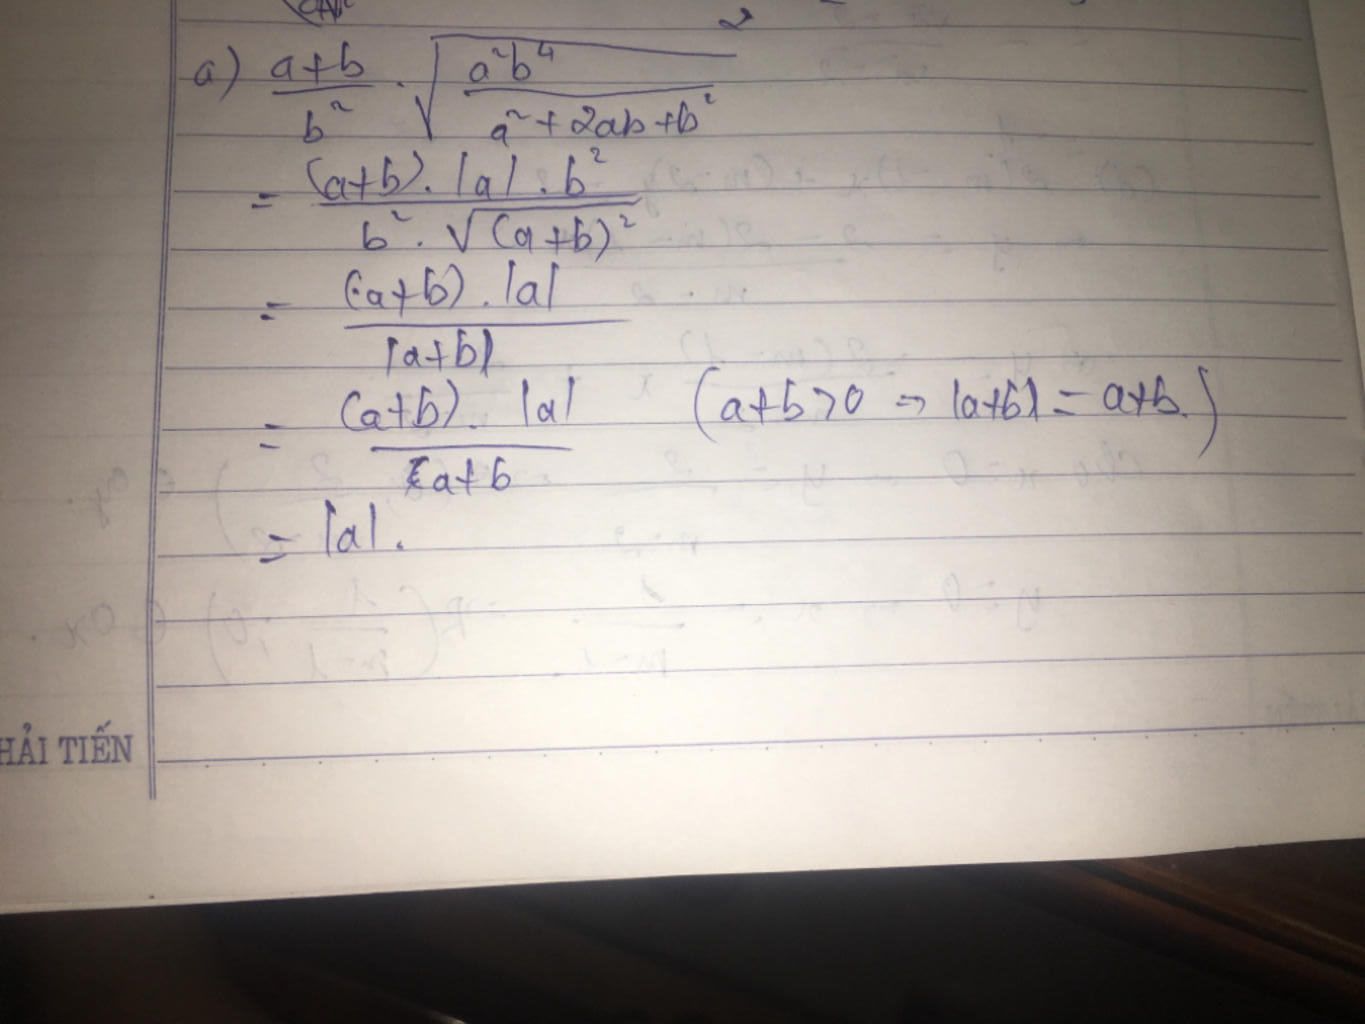 a) \frac{a+b}{b^2} \cdot \sqrt{\frac{a^2b^4}{a^2+2ab+b^2}}
= \frac{(a+b).|a|.b^2}{b^2.\sqrt{(a+b)^2}}
= \frac{(a+b).|a|}{|a+b|}
= \frac{(a+b).|a|}{a+b} (a+b>0 → |a+b| = a+b.)
= |a|.
HẢI TIẾN